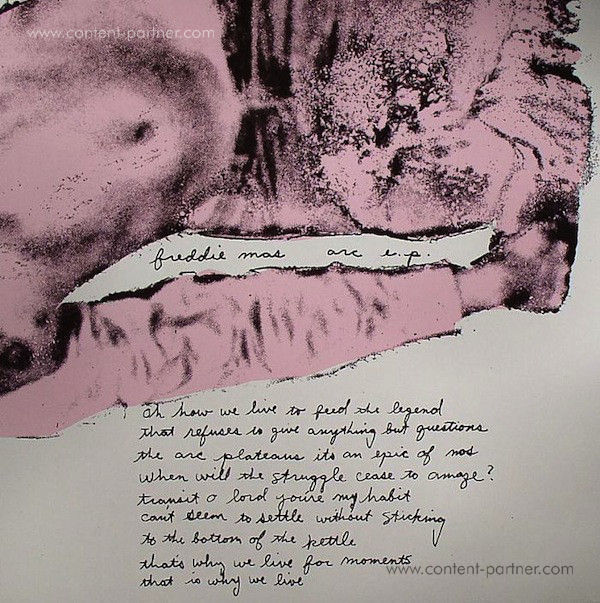 www.content-partner.com
freddie mas arc e.p.
Oh how we live to feed the legend
that refuses to give anything but questions
the arc plateaus its an epic of nos
When will the struggle cease to amaze?
transit o lord you're my habit
can't seem to settle without sticking
to the bottom of the kettle
that's why we live for moments
www.content-partner.com
that is why we live